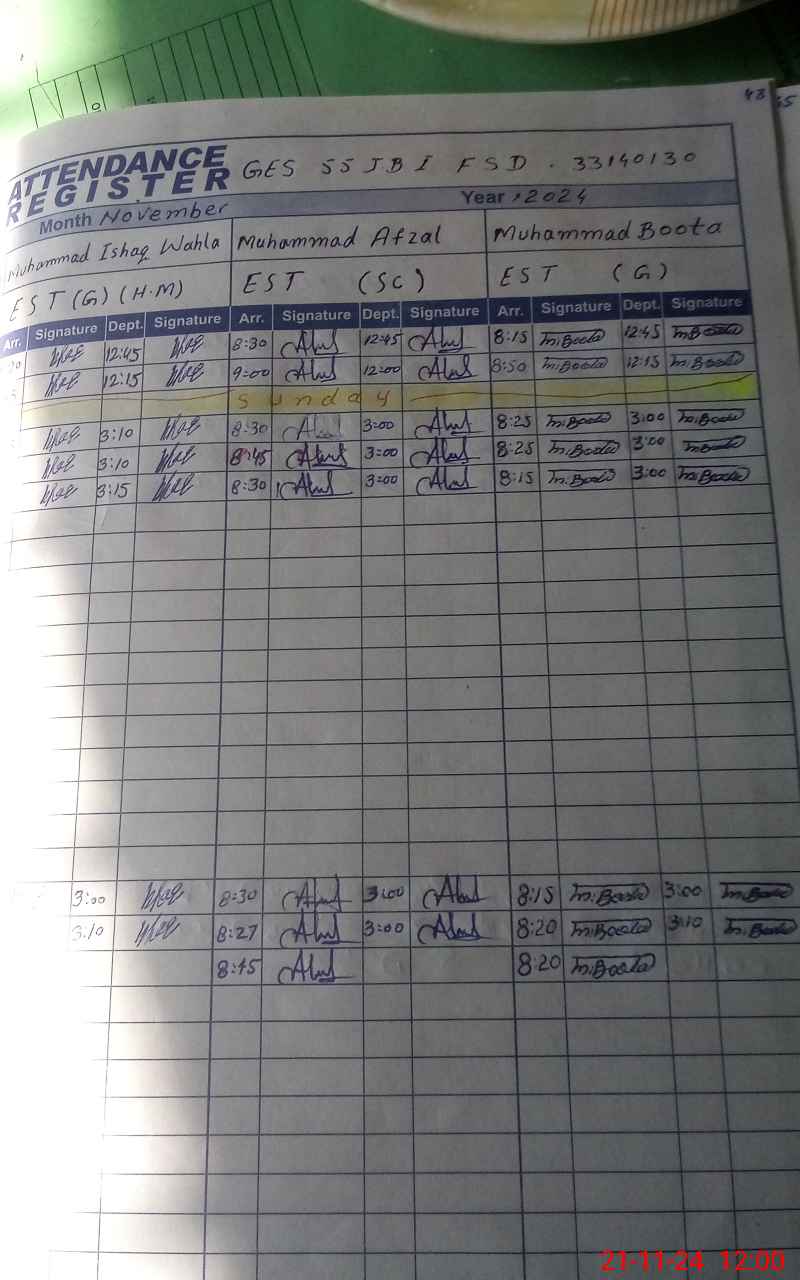 43
ATTENDANCE REGISTER GES 55 JB I FSD . 33140130
Month November Year 2024
Muhammad Ishaq Wahla Muhammad Afzal Muhammad Boota
EST (G) (H.M) EST (SC) EST (G)
Arr. Signature Dept. Signature Arr. Signature Dept. Signature Arr. Signature Dept. Signature
12:45 8:30 12:45 8:15 M.Boota 12:45 M.Boota
12:15 9:00 12:00 8:50 M.Boota 12:15 M.Boota
Sunday
3:10 8:30 3:00 8:25 M.Boota 3:00 M.Boota
3:10 8:45 3:00 8:25 M.Boota 3:00 M.Boota
3:15 8:30 3:00 8:15 M.Boota 3:00 M.Boota
3:00 8:30 3:00 8:15 M.Boota 3:00 M.Boota
3:10 8:27 3:00 8:20 M.Boota 3:10 M.Boota
8:45 8:20 M.Boota
21-11-24 12:00